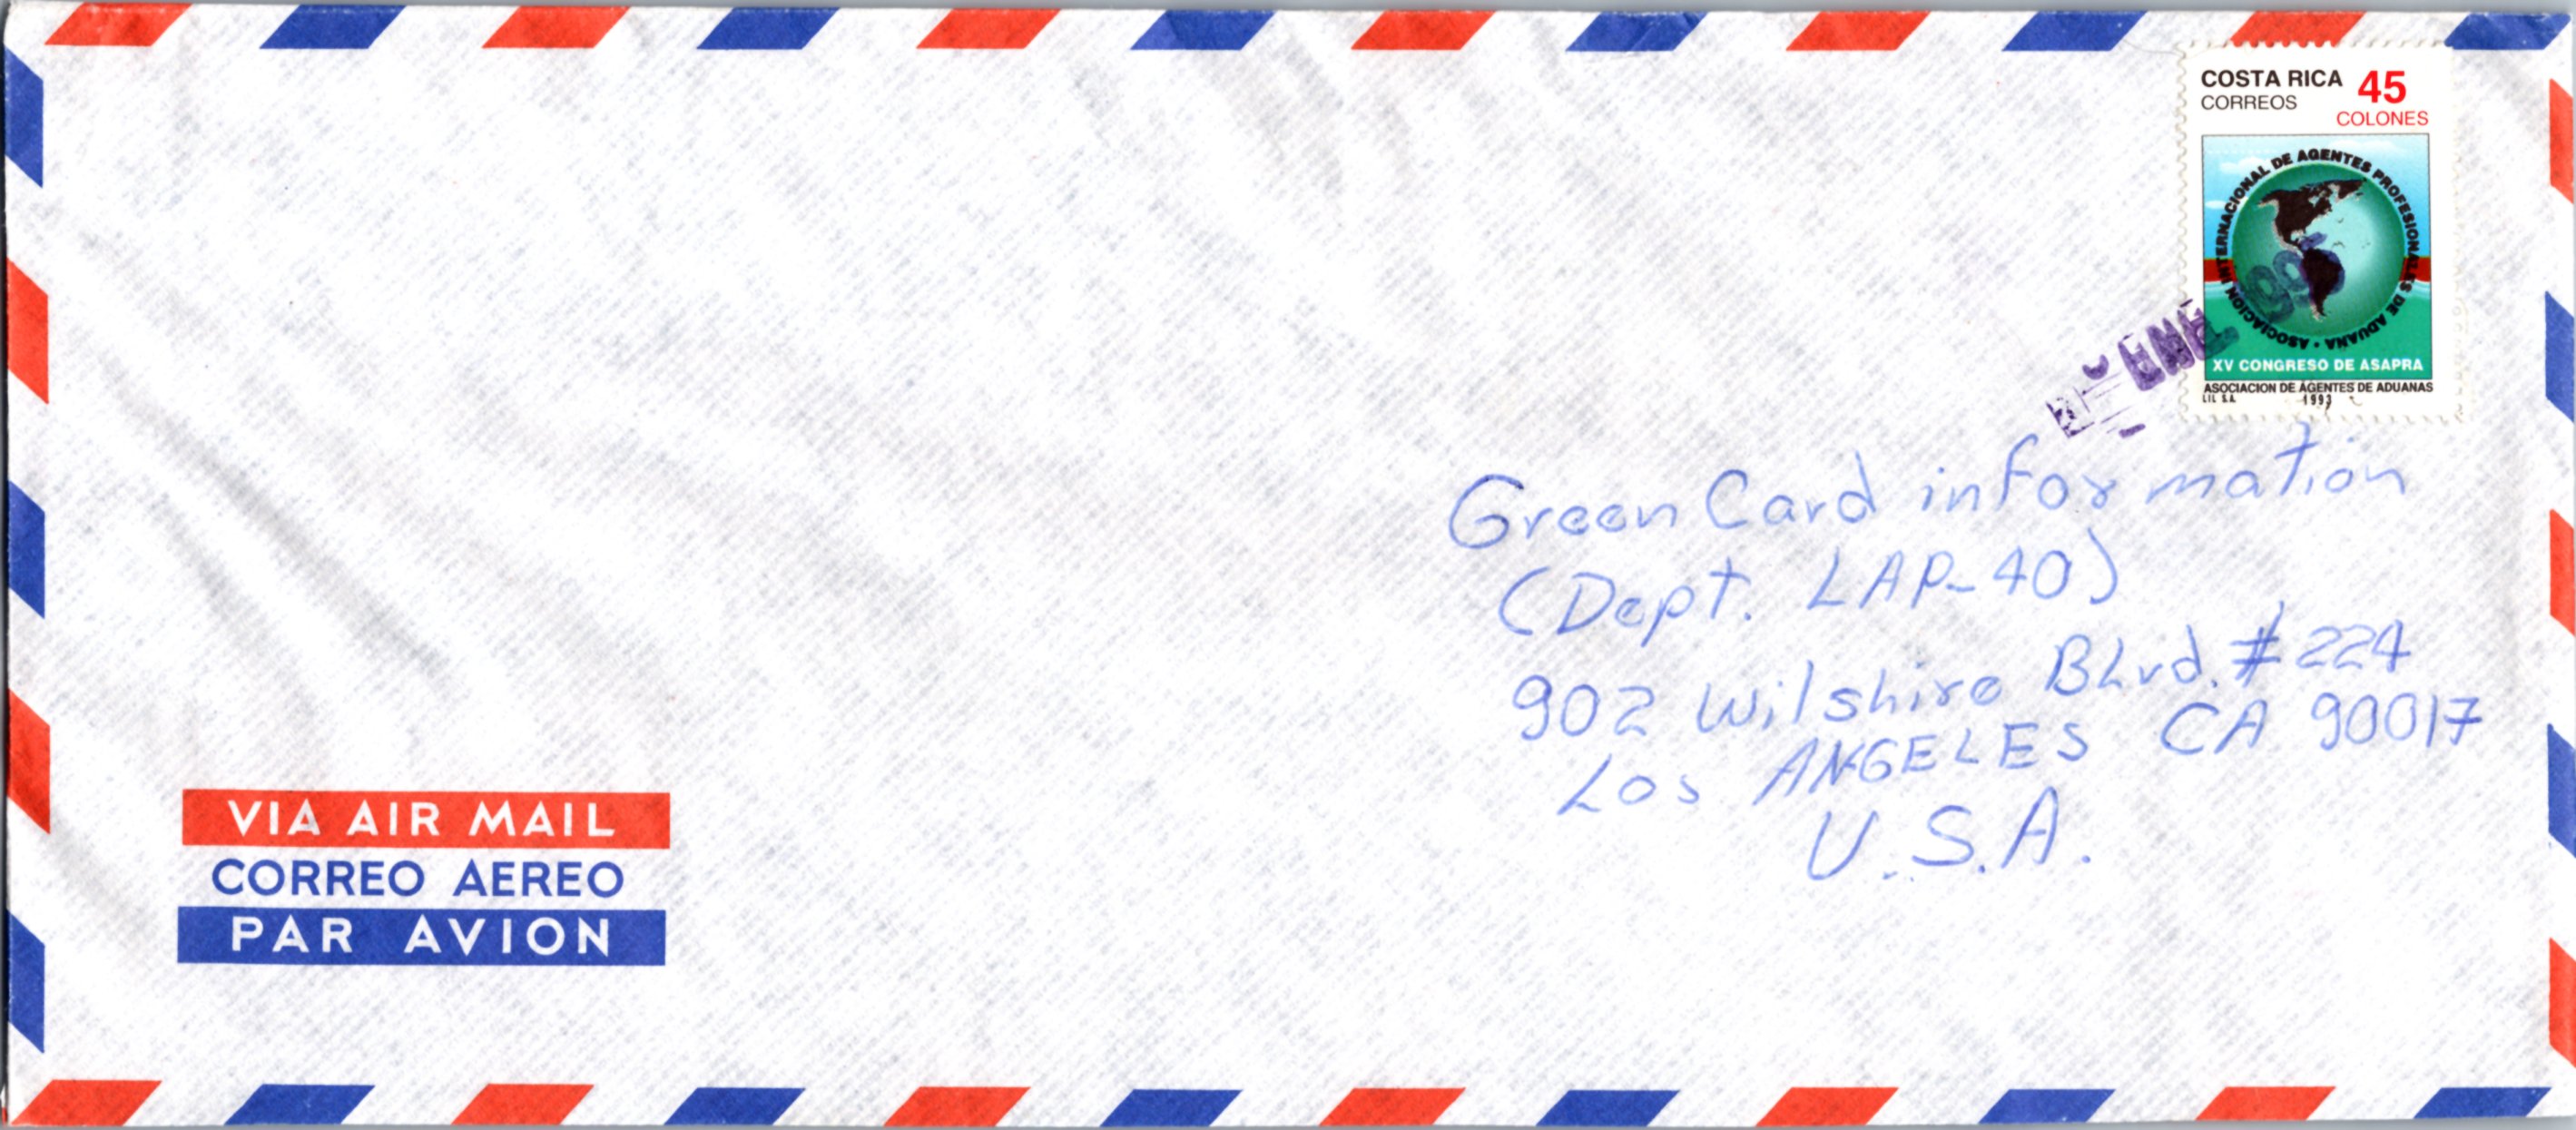 COSTA RICA 45
CORREOS COLONES
ASOCIACION INTERNACIONAL DE AGENTES PROFESIONALES DE ADUANA
XV CONGRESO DE ASAPRA
ASOCIACION DE AGENTES DE ADUANAS
LIL S.A. 1993
Green Card information
(Dept. LAP-40)
902 Wilshire BLvd. # 224
Los ANGELES CA 90017
U.S.A.
VIA AIR MAIL
CORREO AEREO
PAR AVION